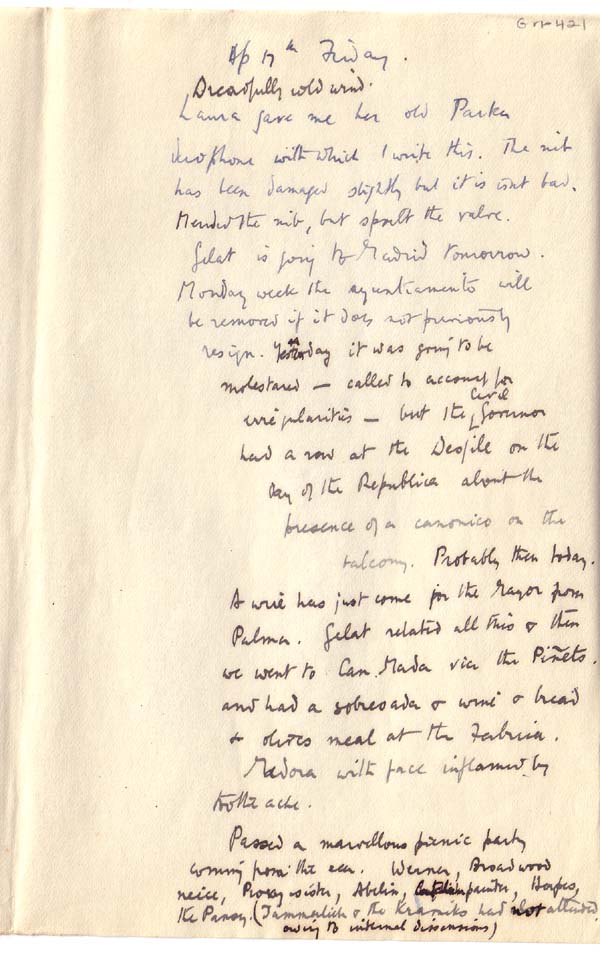 Gn-421
Ap 17th Friday.
Dreadfully cold wind.
Laura gave me her old Parker
duophone with which I write this. The nib
has been damaged slightly but it is isnt bad.
Mended the nib, but spoilt the valve.
Gelat is going to Madrid tomorrow.
Monday week the ayuntiamento will
be removed if it does not previously
resign. Yesterday it was going to be
molestared — called to account for
irregularities — but the Civil Governor
had a row at the Desfile on the
day of the Republica about the
presence of a canonico on the
balcony. Probably then today.
A wire has just come for the Mayor from
Palma. Gelat related all this & then
we went to Can Mada via the Piñets.
and had a sobresada & wine & bread
& olives meal at the Fabrica.
Medora with face inflamed by
toothache.
Passed a marvellous picnic party
coming from the sea. Werner, Broadwood
neice, Proxy sister, Abelin, painter, Herpes,
the Pansy. (Jammerlich & the Kraminks had not attended
owing to internal dissensions)